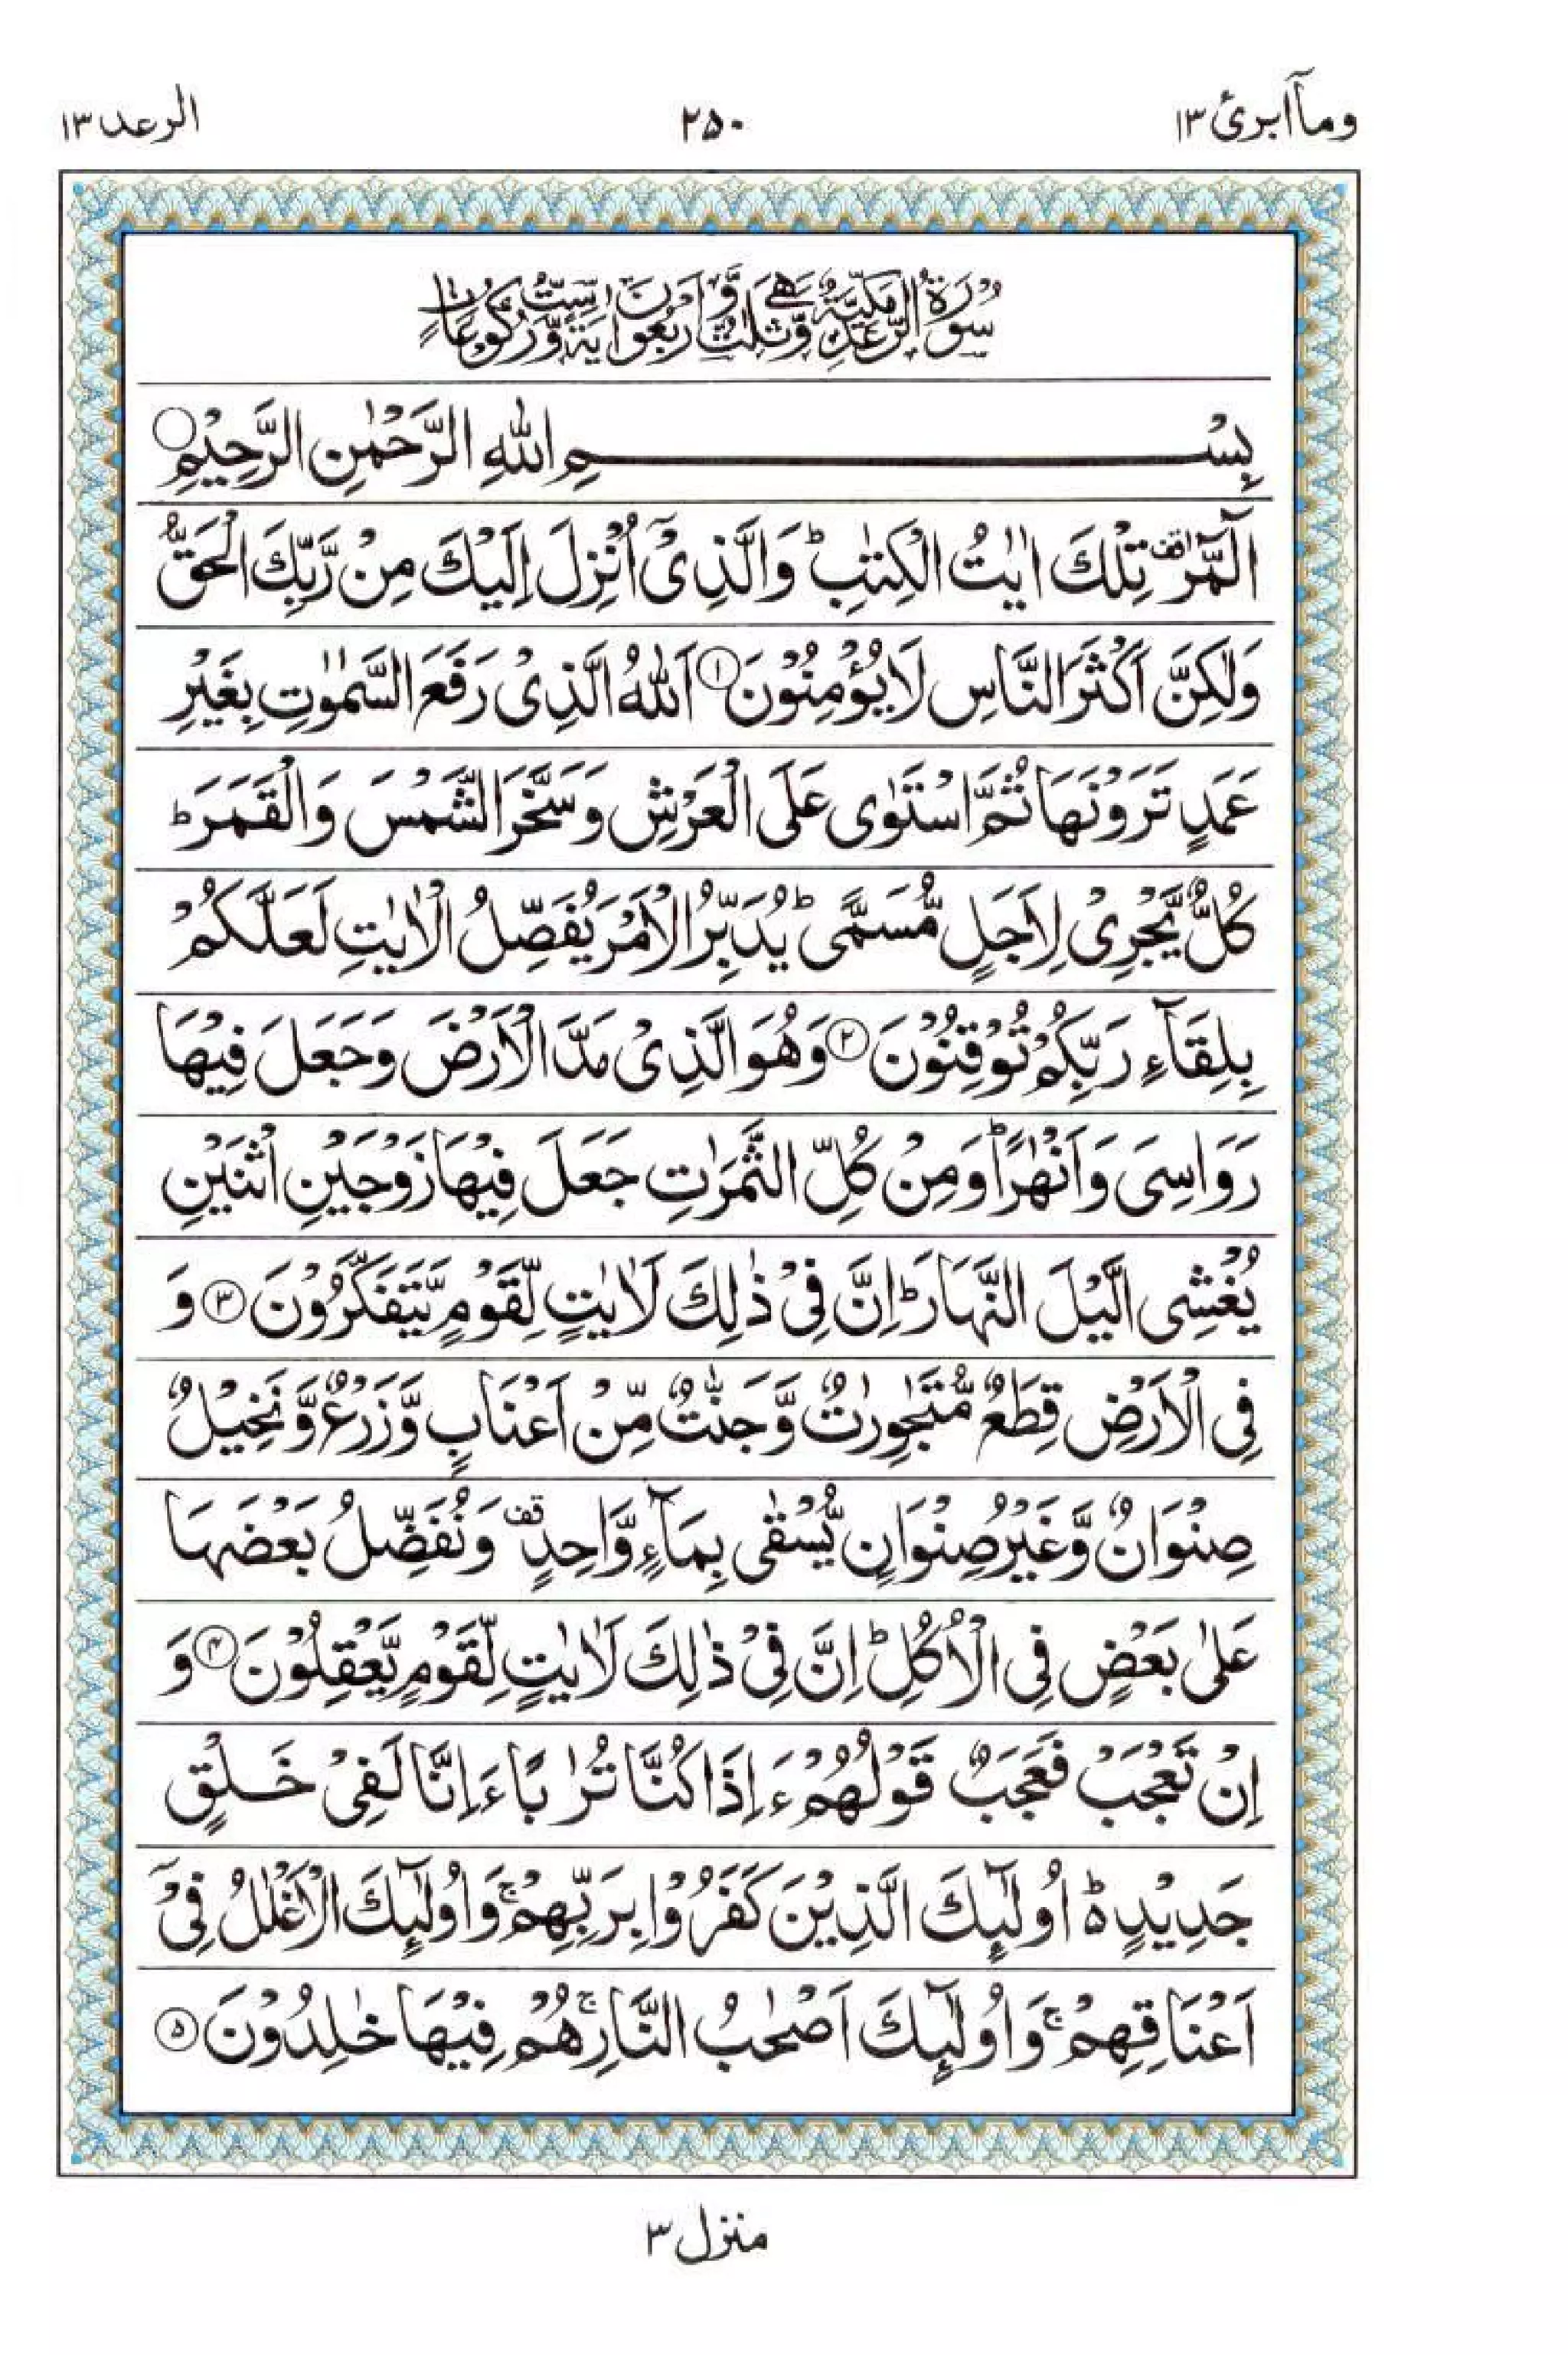 ومآابرئ ١٣
٢٥٠
الرعد ١٣
سُوْرَةُ الرَّعْدِ مَكِّيَّةٌ وَّهِيَ ثَلٰثٌ وَّاَرْبَعُوْنَ اٰيَةً وَّسِتُّ رُكُوْعَاتٍ
بِسْمِ اللّٰهِ الرَّحْمٰنِ الرَّحِيْمِ
الٓمّٓرٰ ۫قف تِلْكَ اٰيٰتُ الْكِتٰبِ ؕ وَالَّذِىْۤ اُنْزِلَ اِلَيْكَ مِنْ رَّبِّكَ الْحَقُّ
وَلٰكِنَّ اَكْثَرَ النَّاسِ لَا يُؤْمِنُوْنَ ١ اَللّٰهُ الَّذِىْ رَفَعَ السَّمٰوٰتِ بِغَيْرِ
عَمَدٍ تَرَوْنَهَا ثُمَّ اسْتَوٰى عَلَى الْعَرْشِ وَسَخَّرَ الشَّمْسَ وَالْقَمَرَ ؕ
كُلٌّ يَّجْرِىْ لِاَجَلٍ مُّسَمًّى ؕ يُدَبِّرُ الْاَمْرَ يُفَصِّلُ الْاٰيٰتِ لَعَلَّكُمْ
بِلِقَآءِ رَبِّكُمْ تُوْقِنُوْنَ ٢ وَهُوَ الَّذِىْ مَدَّ الْاَرْضَ وَجَعَلَ فِيْهَا
رَوَاسِىَ وَاَنْهٰرًا ؕ وَمِنْ كُلِّ الثَّمَرٰتِ جَعَلَ فِيْهَا زَوْجَيْنِ اثْنَيْنِ
يُغْشِى الَّيْلَ النَّهَارَ ؕ اِنَّ فِىْ ذٰلِكَ لَاٰيٰتٍ لِّقَوْمٍ يَّتَفَكَّرُوْنَ ٣ وَ
فِى الْاَرْضِ قِطَعٌ مُّتَجٰوِرٰتٌ وَّجَنّٰتٌ مِّنْ اَعْنَابٍ وَّزَرْعٌ وَّنَخِيْلٌ
صِنْوَانٌ وَّغَيْرُ صِنْوَانٍ يُّسْقٰى بِمَآءٍ وَّاحِدٍ قف وَنُفَضِّلُ بَعْضَهَا
عَلٰى بَعْضٍ فِى الْاُكُلِ ؕ اِنَّ فِىْ ذٰلِكَ لَاٰيٰتٍ لِّقَوْمٍ يَّعْقِلُوْنَ ٤ وَ
اِنْ تَعْجَبْ فَعَجَبٌ قَوْلُهُمْ ءَاِذَا كُنَّا تُرٰبًا ءَاِنَّا لَفِىْ خَلْقٍ
جَدِيْدٍ ۵ؕ اُولٰٓئِكَ الَّذِيْنَ كَفَرُوْا بِرَبِّهِمْ ۚ وَاُولٰٓئِكَ الْاَغْلٰلُ فِىْۤ
اَعْنَاقِهِمْ ۚ وَاُولٰٓئِكَ اَصْحٰبُ النَّارِ ۚ هُمْ فِيْهَا خٰلِدُوْنَ ۵
منزل ٣